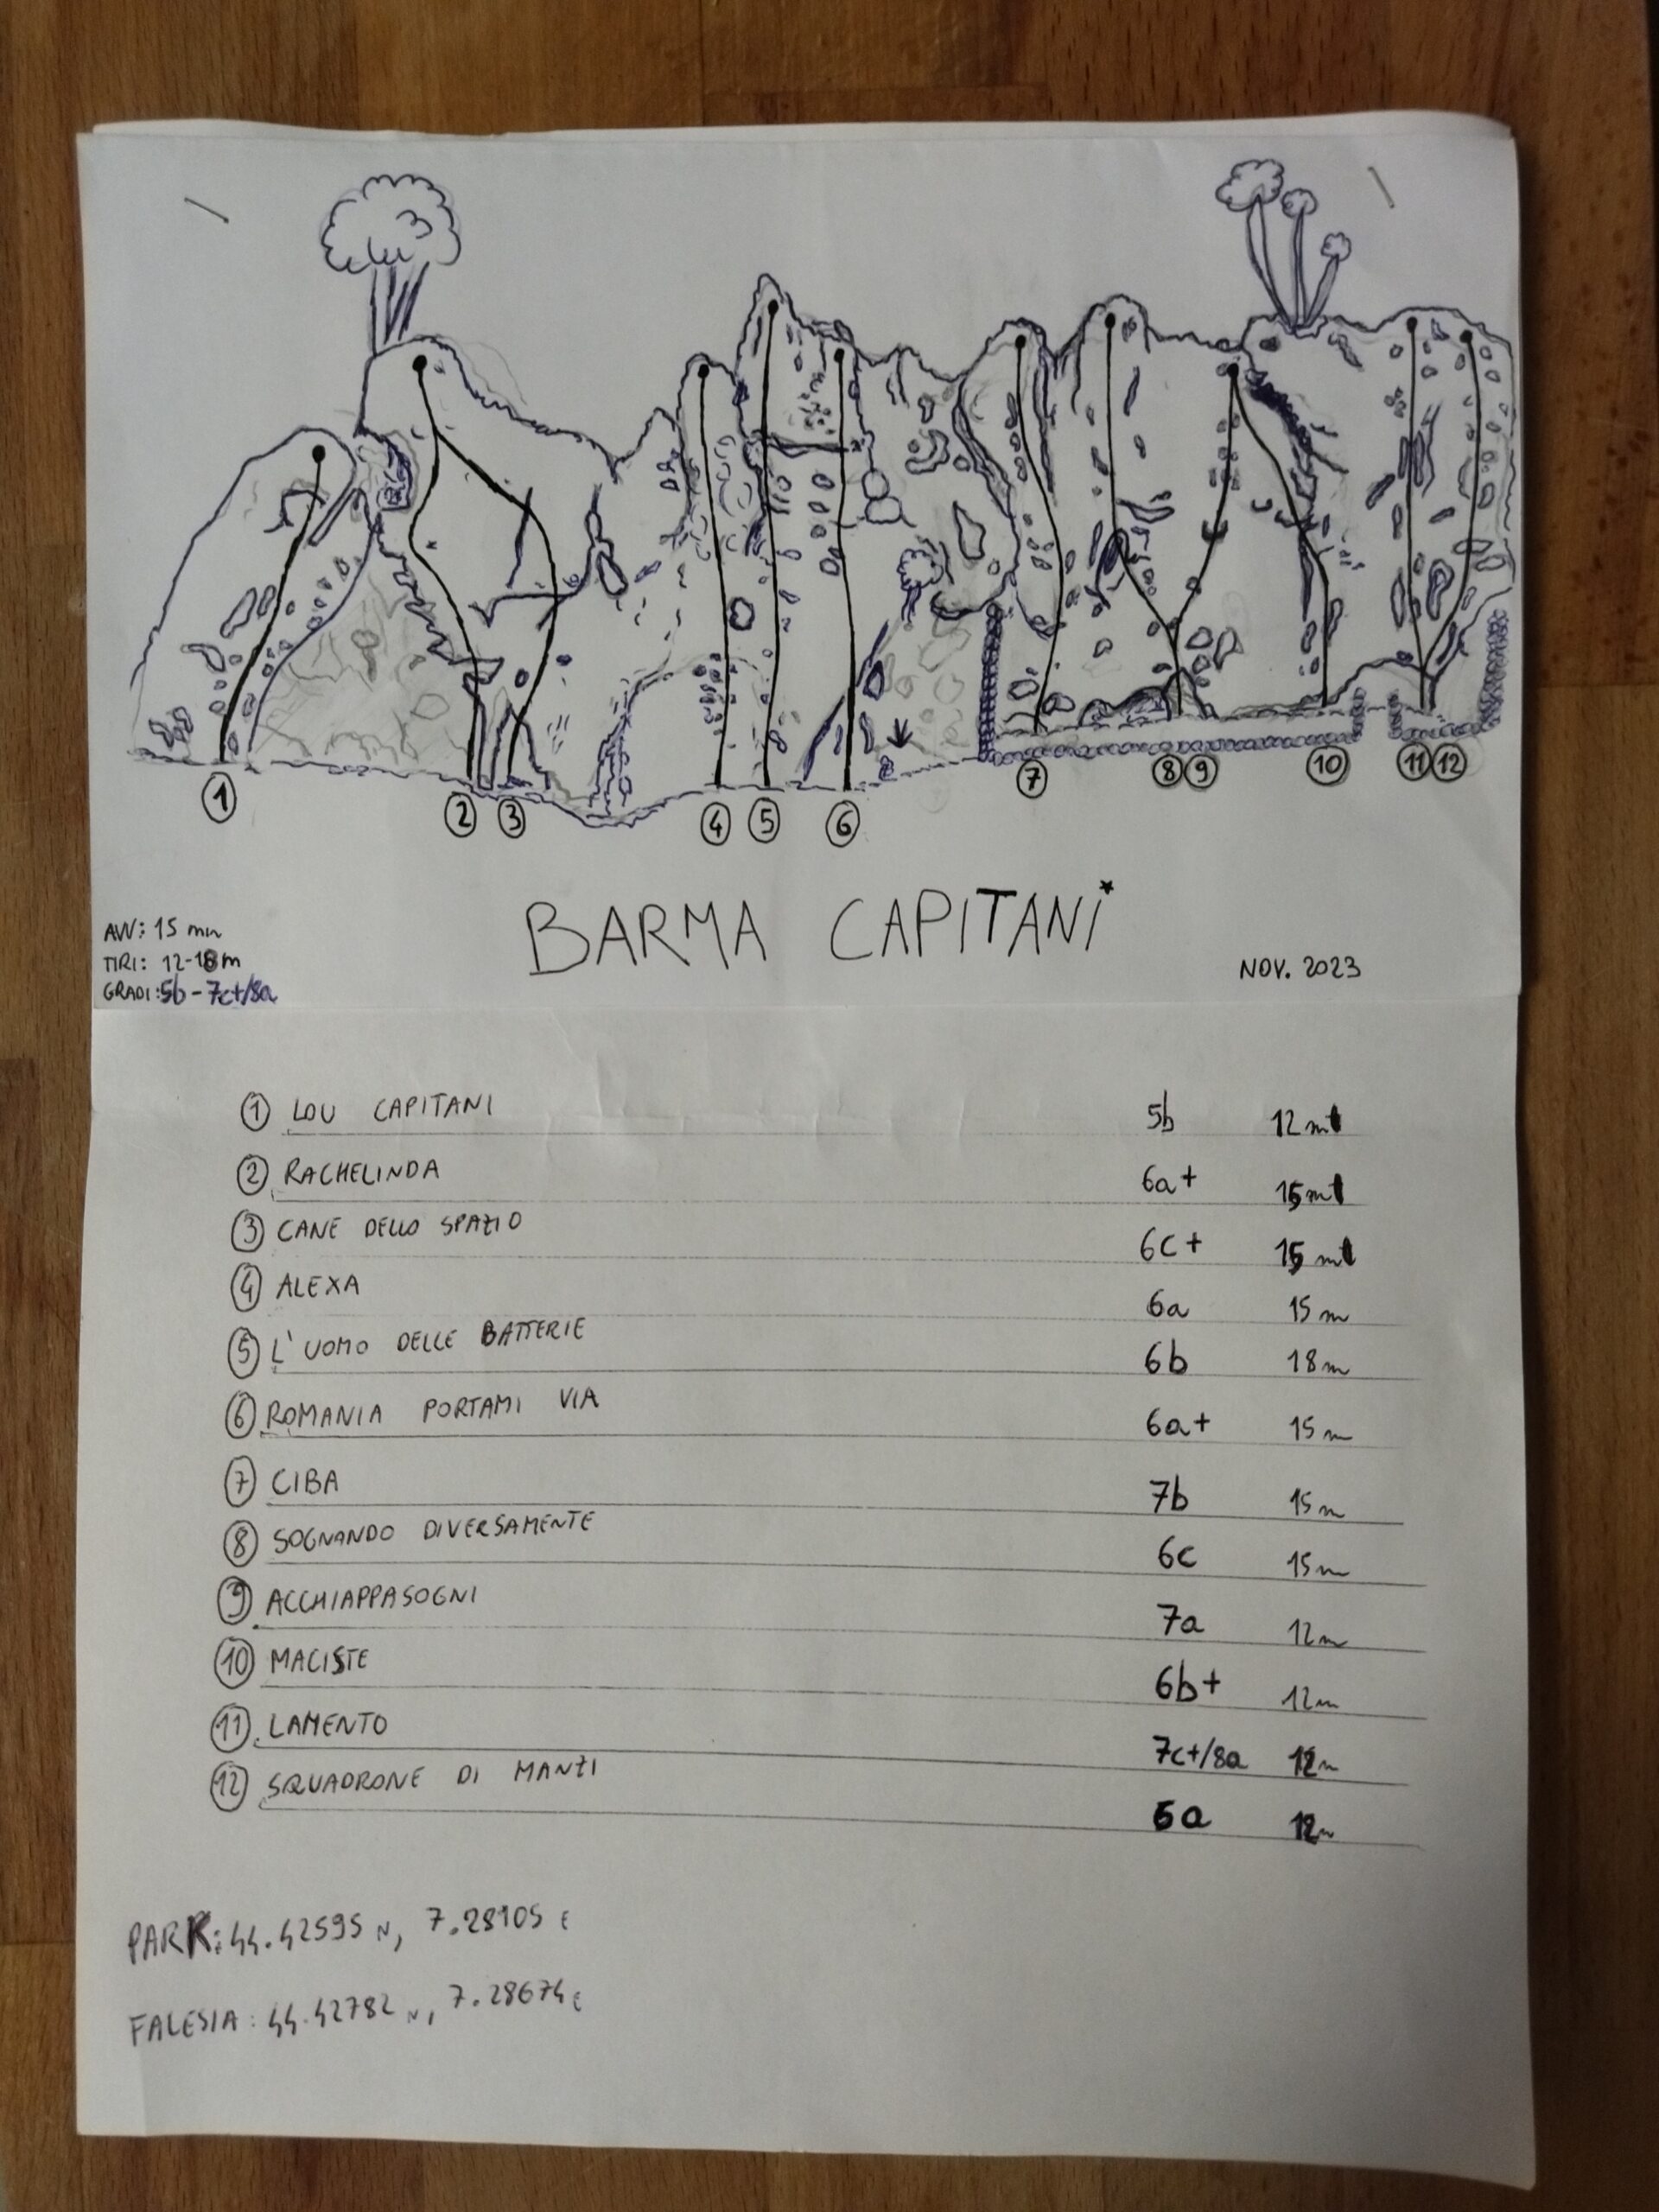 1
2
3
4
5
6
7
8 9
10
11 12
BARMA CAPITANI
AVV: 15 min
TIRI: 12-18m
GRADI: 5b - 7c+/8a
NOV. 2023
1 LOU CAPITANI 5b 12 mt
2 RACHELINDA 6a+ 15 mt
3 CANE DELLO SPAZIO 6c+ 15 mt
4 ALEXA 6a 15 m
5 L'UOMO DELLE BATTERIE 6b 18 m
6 ROMANIA PORTAMI VIA 6a+ 15 m
7 CIBA 7b 15 m
8 SOGNANDO DIVERSAMENTE 6c 15 m
9 ACCHIAPPASOGNI 7a 12 m
10 MACISTE 6b+ 12 m
11 LAMENTO 7c+/8a 12 m
12 SQUADRONE DI MANZI 12 m
PARK: 44.42595 N, 7.28105 E
FALESIA: 44.42782 N, 7.28674 E